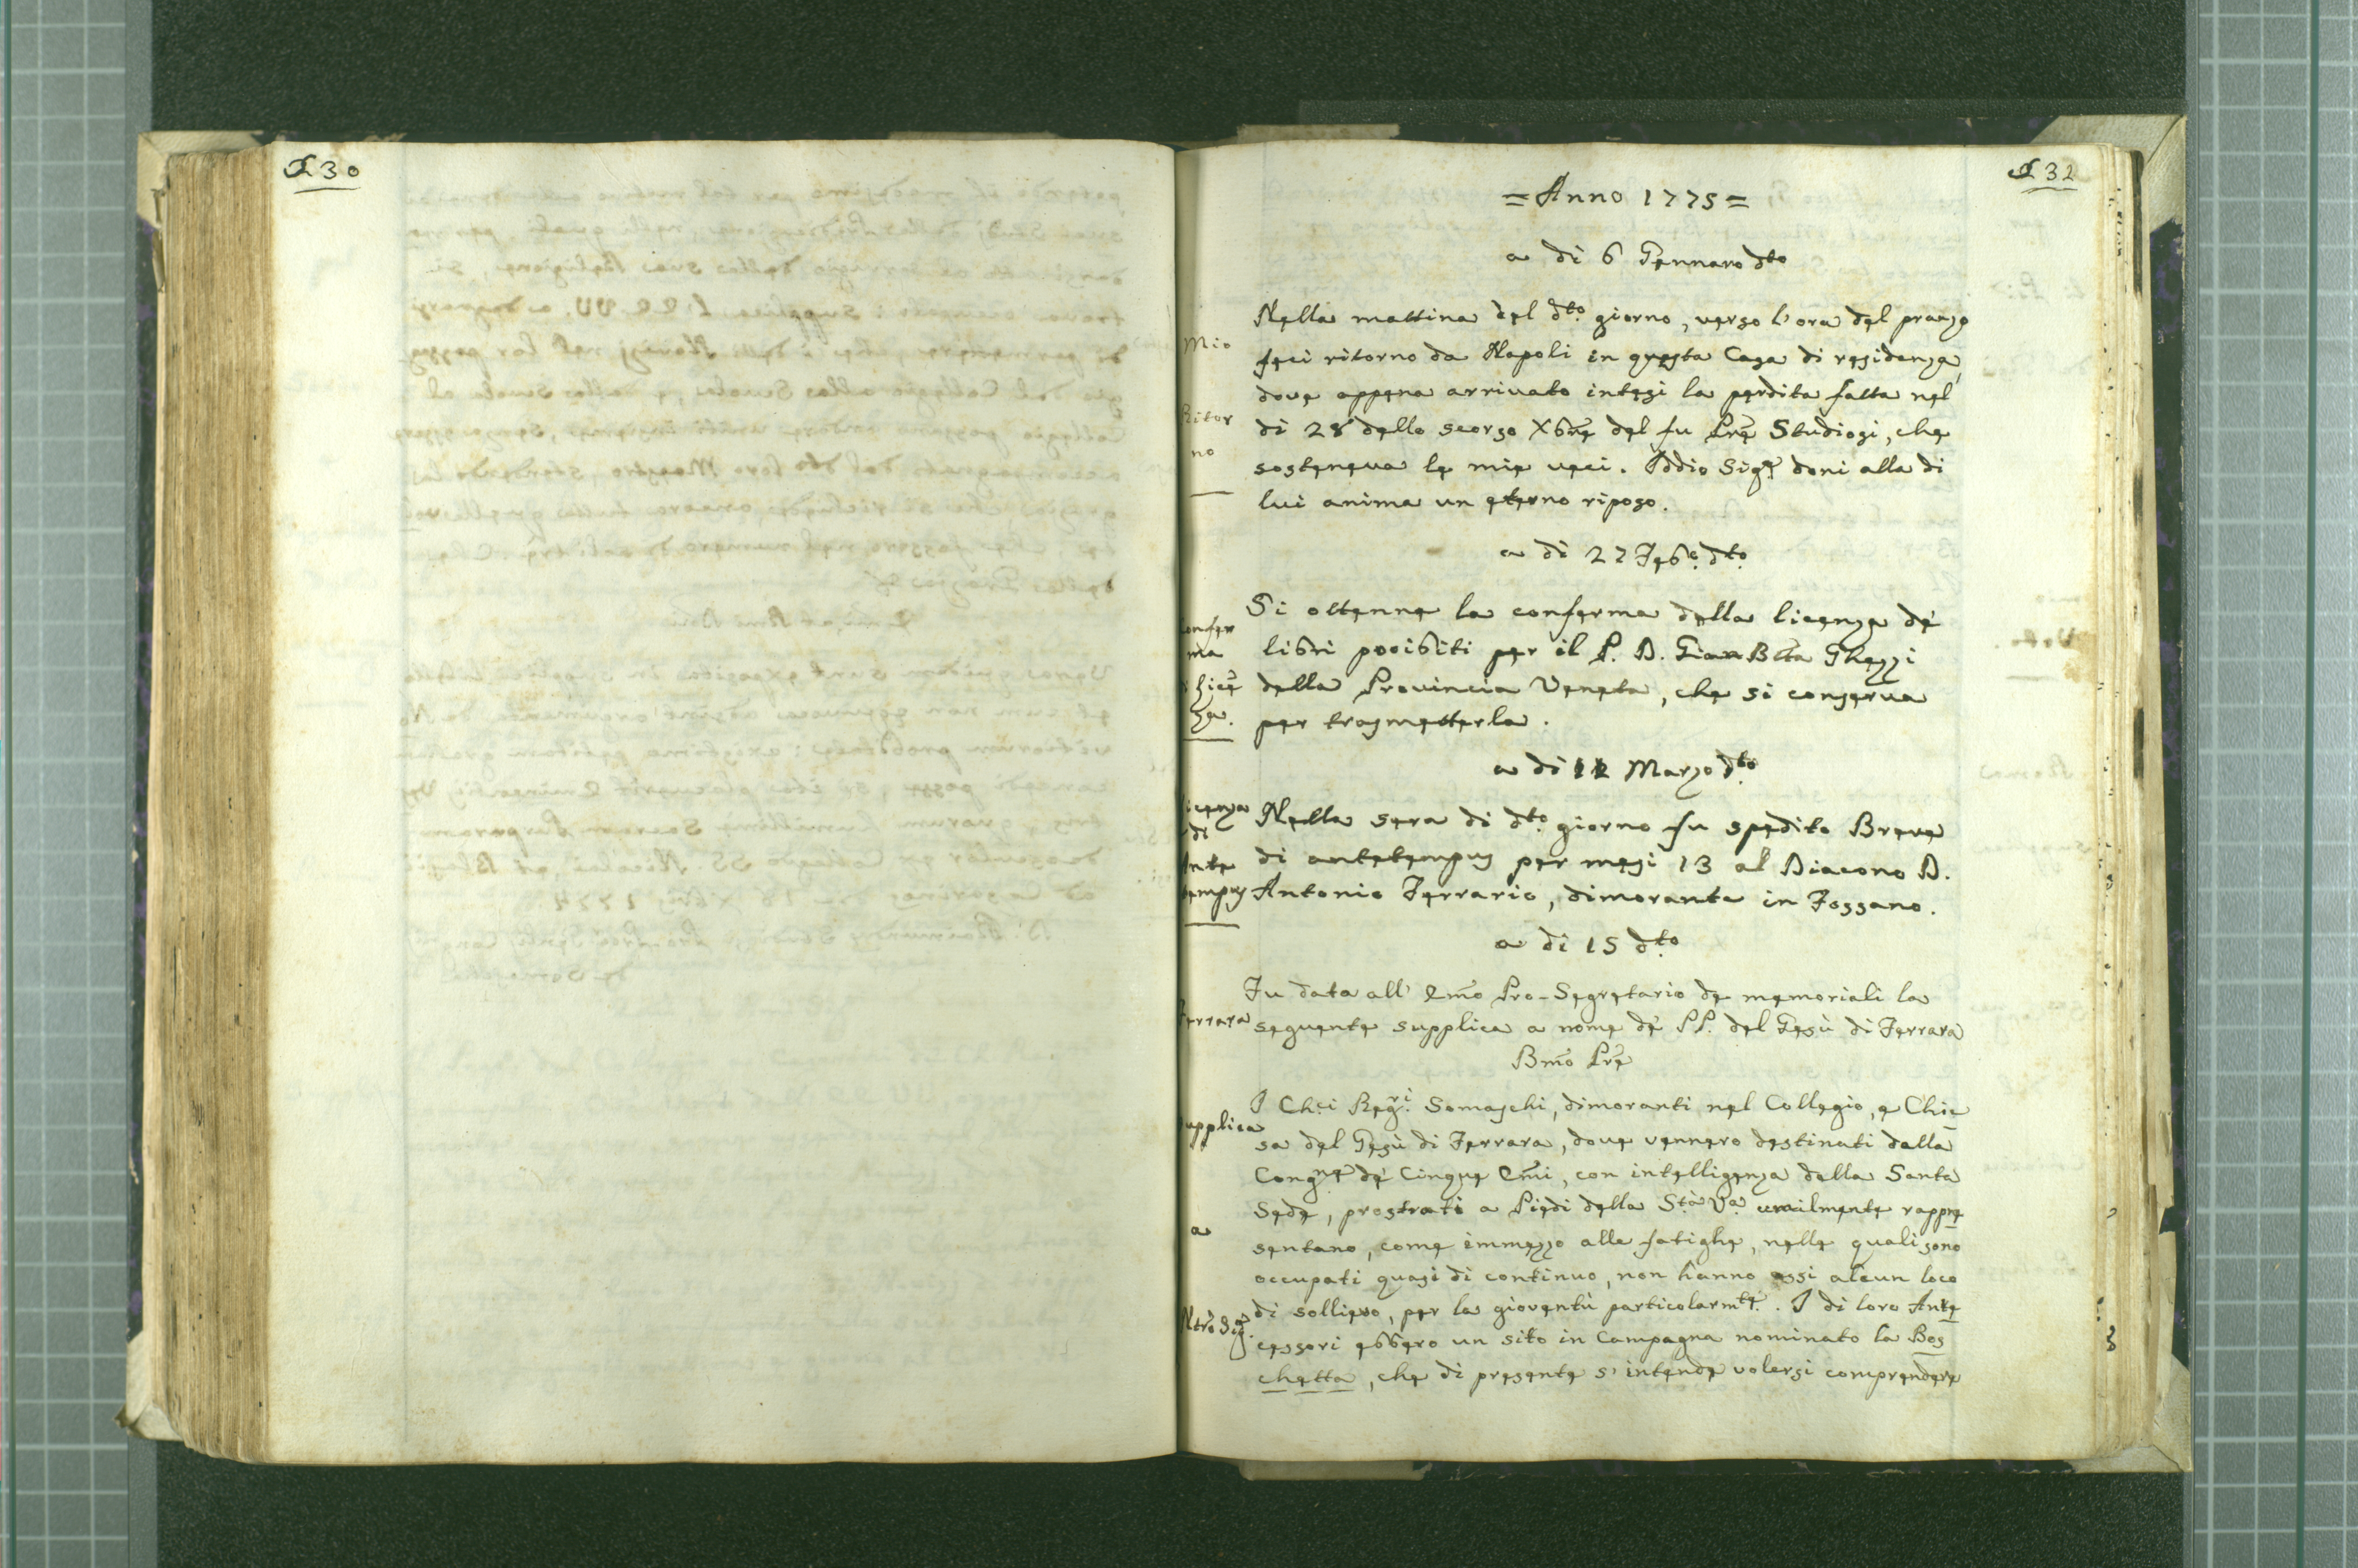 230
232
= Anno 1775 =
a di 6 Gennaro dto
Mio
Ritor
no
Nella mattina del dto giorno, verso l'ora del pranzo
feci ritorno da Napoli in questa Casa di residenza,
dove appena arrivato intesi la perdita fatta nel
di 28 dello scorso Xbre del fu Pre Studiosi, che
sosteneva le mie veci. Iddio Sigr doni alla di
lui anima un eterno riposo.
a di 27 Febo dto
onfer
ma
Licē
za.
Si ottenne la conferma della licenza de'
libri proibiti per il P. D. Gian Btta Ghezzi
della Provincia Veneta, che si conserva
per trasmetterla.
a di Marzo dto
icenza
di
Ante
tempus
Nella sera di dto giorno fu spedito Breve
di antetempus per mesi 13 al Diacono D.
Antonio Ferrario, dimorante in Fossano.
a di 15 dto
Ferrara
Fu data all' Emo Pro-Segretario de memoriali la
seguente supplica a nome de' PP. del Gesù di Ferrara
Bmo Pre
upplica
a
Ntro Sig.
I Chci Regri Somaschi, dimoranti nel Collegio, e Chie
sa del Gesù di Ferrara, dove vennero destinati dalla
Congne de' Cinque Emi, con intelligenza della Santa
Sede, prostrati a Piedi della Sta Va umilmente rappre
sentano, come immezzo alle fatighe, nelle quali sono
occupati quasi di continuo, non hanno essi alcun loco
di sollievo, per la gioventù particolarmte. I di loro Ante
cessori ebbero un sito in Campagna nominato la Bos
chetta, che di presente s'intende volersi comprendere